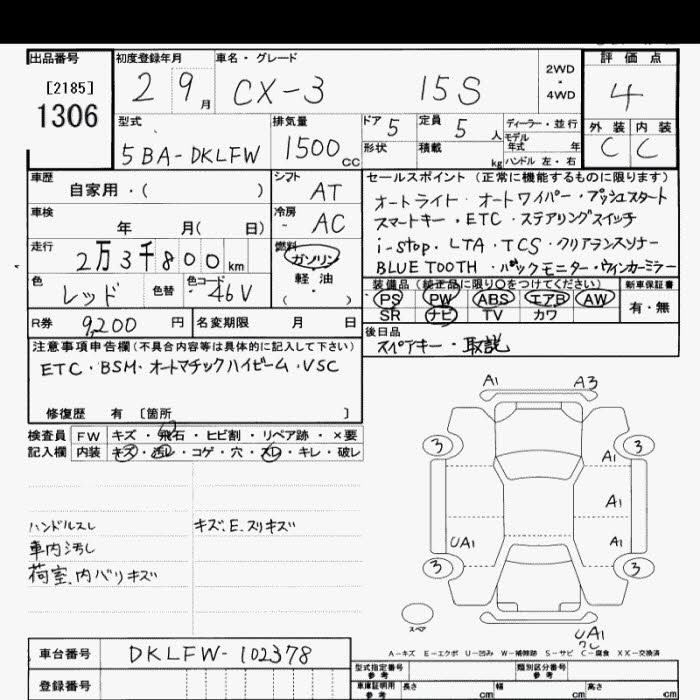 出品番号 [2185] 1306
初度登録年月 2 9月
車名・グレード CX-3 15S
2WD・4WD
評価点 4
外装 C 内装 C
型式 5BA-DKLFW
排気量 1500cc
ドア 5 定員 5人
形状 積載 kg
ディーラー・並行
モデル年式 年
ハンドル 左・右
車歴 自家用・( )
シフト AT
車検 年 月( 日)
冷房 AC
走行 2万3千800km
燃料 ガソリン 軽油 ( )
色 レッド 色替 色コード 46V
R券 9,200円 名変期限 月 日
セールスポイント (正常に機能するものに限ります)
オートライト・オートワイパー・プッシュスタート
スマートキー・ETC・ステアリングスイッチ
i-stop・LTA・TCS・クリアランスソナー
BLUETOOTH・バックモニター・ウインカーミラー
装備品(純正品に限り○をつけてください) 新車保証書
PS PW ABS エアB AW
SR ナビ TV カワ 有・無
後日品
スペアキー・取説
注意事項申告欄(不具合内容等は具体的に記入して下さい)
ETC・BSM・オートマチックハイビーム・VSC
修復歴 有 〔箇所 〕
検査員 FW キズ・飛石・ヒビ割・リペア跡・×要
記入欄 内装 キズ・汚レ・コゲ・穴・スレ・キレ・破レ
ハンドルスレ キズ、E、スリキズ
車内汚し
荷室、内バリキズ
A1 A3
3 3
A1
A1
UA1 A1
3 3
スペア
UA1
A-キズ E-エクボ U-凹み W-補修跡 S-サビ C-腐食 XX-交換済
車台番号 DKLFW-102378
登録番号
型式指定番号 参考 類別区分番号 参考
車庫証明用 参考 長さ cm 幅 cm 高さ cm